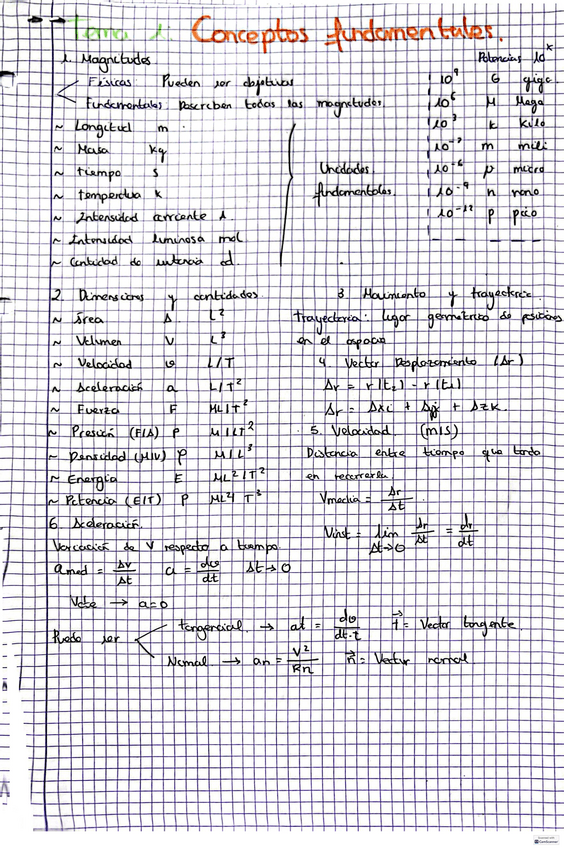 Tema 1: Conceptos fundamentales.
1. Magnitudes
Físicas: Pueden ser objetivas
Fundamentales: Describen todas las magnitudes
~ Longitud m
~ Masa kg
~ tiempo s
~ temperatura k
~ Intensidad corriente A
~ Intensidad luminosa mol
~ Cantidad de sustancia cd
Unidades
fundamentales.
Potencias 10ˣ
10⁹ G giga
10⁶ M Mega
10³ k kilo
10⁻³ m mili
10⁻⁶ μ micro
10⁻⁹ n nano
10⁻¹² p pico
2. Dimensiones y cantidades
~ Área A L²
~ Volumen V L³
~ Velocidad v L/T
~ Aceleración a L/T²
~ Fuerza F ML/T²
~ Presión (F/A) P M/LT²
~ Densidad (M/V) ρ M/L³
~ Energía E ML²/T²
~ Potencia (E/T) P ML²/T³
3. Movimiento y trayectoria
trayectoria: lugar geométrico de posiciones
en el espacio
4. Vector Desplazamiento (Δr)
Δr = r(t₂) - r(t₁)
Δr = Δxi + Δyj + Δzk.
5. Velocidad. (m/s)
Distancia entre tiempo que tarda
en recorrerla.
Vmedia = Δr/Δt
Vinst = lim Δt→0 Δr/Δt = dr/dt
6. Aceleración.
Variación de V respecto a tiempo
amed = Δv/Δt a = dv/dt Δt→0
Vcte → a=0
Puede ser
tangencial → at = dv/dt·t t⃗ = Vector tangente.
Normal → an = V²/Rn n⃗ = Vector normal
CamScanner